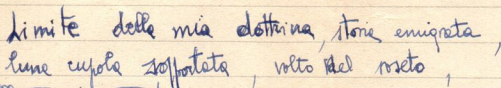 Limite della mia dottrina, storia emigrata,
lume cupola sofferta, volto del roseto,